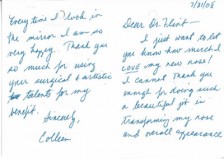 7/31/08
Dear Dr. Flint -
I just want to let
you know how much I
LOVE my new nose!
I cannot thank you
enough for doing such
a beautiful job in
transforming my nose
and overall appearance.
Every time I look in
the mirror I am so
very happy. Thank you
so much for using
your surgical & artistic
talents for my
benefit.
Sincerely,
Colleen